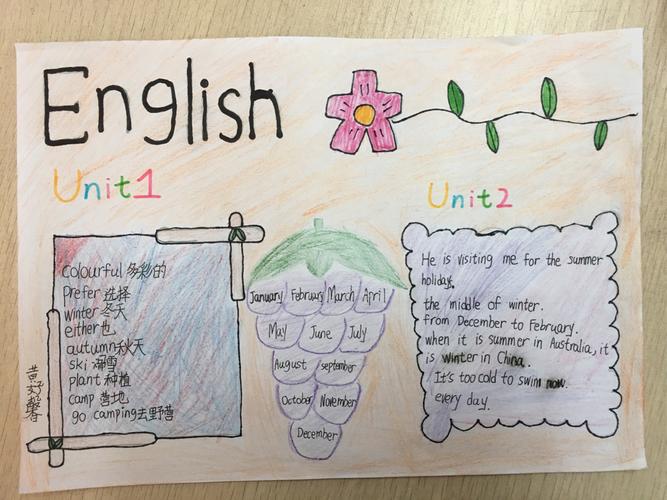 English
Unit1
colourful 多彩的
prefer 选择
winter 冬天
either也
autumn秋天
ski 滑雪
plant 种植
camp 营地
go camping去野营
黄好馨
January February March April
May June July
August september
October November
December
Unit2
He is visiting me for the summer
holiday.
the middle of winter.
from December to February.
when it is summer in Australia, it
is winter in China.
It's too cold to swim now.
every day.